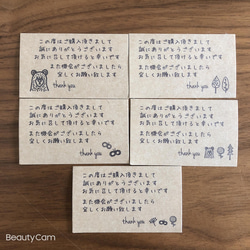 この度はご購入頂きまして
誠にありがとうございます
お気に召して頂けると幸いです
また機会がございましたら
宜しくお願い致します
thank you
この度はご購入頂きまして
誠にありがとうございます
お気に召して頂けると幸いです
また機会がございましたら
宜しくお願い致します
thank you
この度はご購入頂きまして
誠にありがとうございます
お気に召して頂けると幸いです
また機会がございましたら
宜しくお願い致します
thank you
この度はご購入頂きまして
誠にありがとうございます
お気に召して頂けると幸いです
また機会がございましたら
宜しくお願い致します
thank you
この度はご購入頂きまして
誠にありがとうございます
お気に召して頂けると幸いです
また機会がございましたら
宜しくお願い致します
thank you
BeautyCam